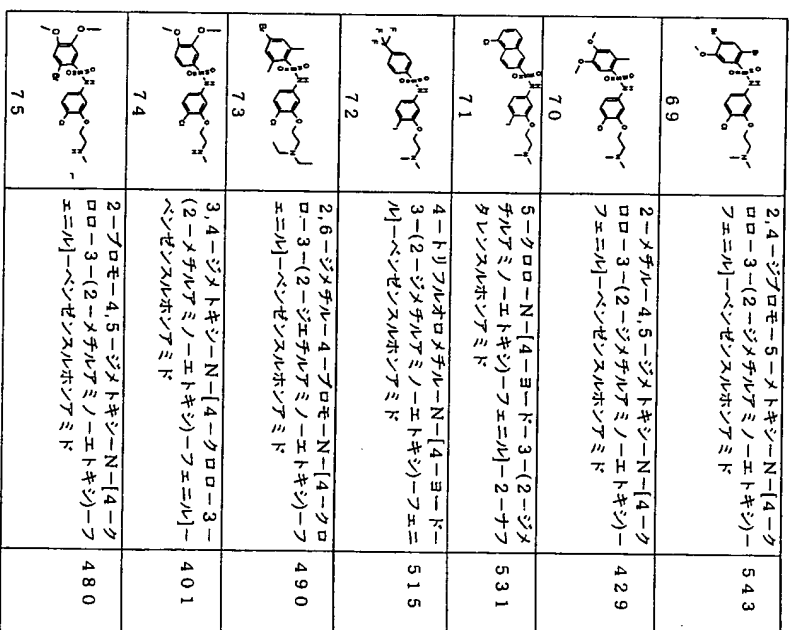 69
2,4-ジブロモ-5-メトキシ-N-[4-ク
ロロ-3-(2-ジメチルアミノ-エトキシ)-
フェニル]-ベンゼンスルホンアミド
543
70
2-メチル-4,5-ジメトキシ-N-[4-ク
ロロ-3-(2-ジメチルアミノ-エトキシ)-
フェニル]-ベンゼンスルホンアミド
429
71
5-クロロ-N-[4-ヨード-3-(2-ジメ
チルアミノ-エトキシ)-フェニル]-2-ナフ
タレンスルホンアミド
531
72
4-トリフルオロメチル-N-[4-ヨード-
3-(2-ジメチルアミノ-エトキシ)-フェニ
ル]-ベンゼンスルホンアミド
515
73
2,6-ジメチル-4-ブロモ-N-[4-クロ
ロ-3-(2-ジエチルアミノ-エトキシ)-フ
ェニル]-ベンゼンスルホンアミド
490
74
3,4-ジメトキシ-N-[4-クロロ-3-
(2-メチルアミノ-エトキシ)-フェニル]-
ベンゼンスルホンアミド
401
75
2-ブロモ-4,5-ジメトキシ-N-[4-ク
ロロ-3-(2-メチルアミノ-エトキシ)-フ
ェニル]-ベンゼンスルホンアミド
480